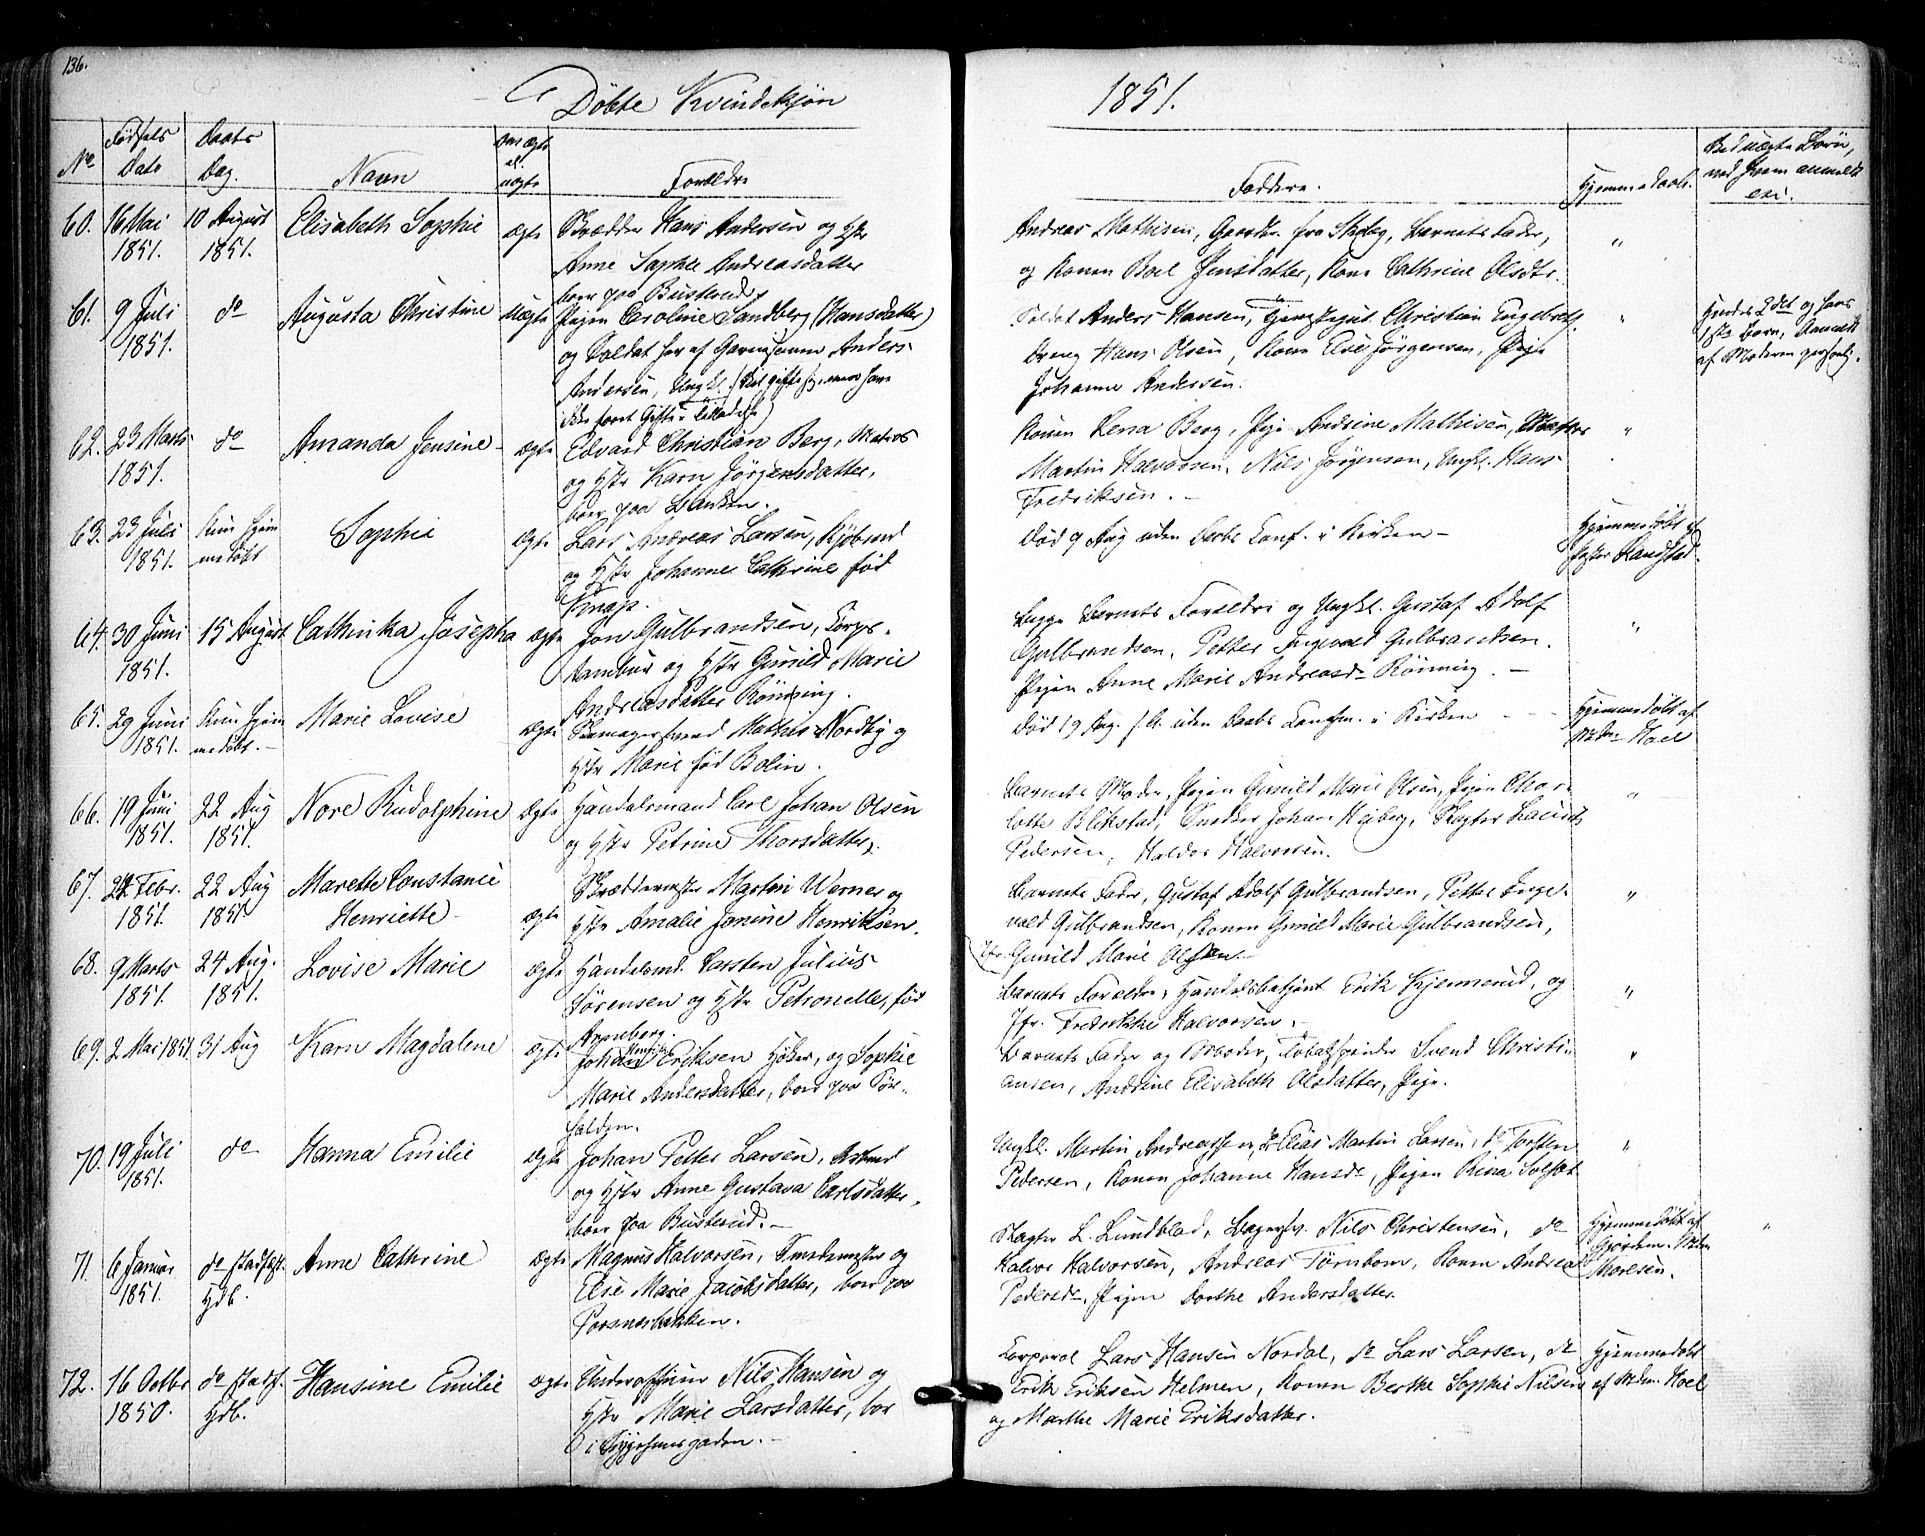 136.
Döbte Kvindekjön 1851.
No Födsels Dato Daabs Dag. Navn Om ægte el. uægte Forældre Faddere. Hjemmedøbt. Ved uægte Börn, ved hvem anmeldt
60. 16 Mai 1851. 10 August 1851. Elisabeth Sophie ægte Skrædder Hans Andersen og Hstr
Anne Sophie Andreasdatter
boer paa Busterud,
Andreas Mathisen, Gaardbr. fra Skeby, Barnets Fader,
og Konen Boel Jensdatter, Kone Cathrine Olsdtr. "
61. 9 Juli 1851. do Augusta Christine uægte Pigen Caroline Sandberg (Hansdatter)
og Soldat her af Garnisonen Anders
Andersen, Ungkl.
Soldat Anders Hansen, Christian Engebrets.
Dreng Hans Olsen, Kone Else Jörgensen, Pige
Johanne Andersen. "
Hendes 2det og hans
1ste Barn, Anmeldt
af Moderen personl.
62. 23 Marts 1851. do Amanda Jensine ægte Edvard Christian Berg, Matros
og Hstr Karn Jörgensdatter,
boer paa Banken.
Konen Lena Berg, Pige Andrine Mathisen,
Martin Halvorsen, Nils Jörgensen, Ungk. Hans
Fredriksen. "
63. 23 Juli 1851. Kun hjem
medöbt Sophie ægte Lars Andreas Larsen, Kjöbmd
og Hstr Johanne Cathrine född
Knap.
Död 9 Aug uden Daabs Conf. i Kirken
Hjemmedöbt af
Landstad.
64. 30 Juni 1851. 15 August Cathinka Josepha ægte Jon Gulbrandsen, Corps-
tambur og Hstr Gunild Marie
Andreasdatter Rönning.
Begge Barnets Forældre og Ungkl. Gustaf Adolf
Gulbrandsen, Petter Ingevald Gulbrandsen.
Pigen Anne Marie Andreasd. Rönning. "
65. 29 Juni 1851. Kun hjem
medöbt. Marie Lovise ægte Skomagersvend Mathis Nordby og
Hstr Marie föd Bolin.
Död 19 Aug. uden Daabs Confirm. i Kirken
Hjemmedöbt af
Hoel
66. 19 Juni 1851. 22 Aug 1851. Nore Rudolphine ægte Handelsmand Carl Johan Olsen
og Hstr Petrine Thorsdatter.
Barnets Moder, Pigen Gunild Marie Olsen, Pigen Char-
lotte Blikstad, Snedker Johan Heiberg, Slagter Laurits
Pedersen, Haldor Halvorsen. "
67. 24 Febr. 1851. 22 Aug 1851 Marette Constance
Henriette ægte Skræddermester Martin Werner og
Hstr Amalie Jonine Henriksen.
Barnets Fader, Gustaf Adolf Gulbrandsen, Petter Inge-
vald Gulbrandsen, Konen Gunild Marie Gulbrandsen,
Jfr. Gunild Marie Olsen. "
68. 9 Marts 1851. 24 Aug. 1851. Lovise Marie ægte Handelsmd. Carsten Julius
Sörensen og Hstr Petronelle, föd
Arneberg.
Barnets Forældre, Handelsbetjent Erik Kjennerud, og
Jfr. Fredrikke Halvorsen. "
69. 2 Mai 1851. 31 Aug Karn Magdalene ægte Johan Henrik Eriksen Höker, og Sophie
Marie Andersdatter, boer paa Sör-
halden.
Barnets Fader og Moder, Tobaksspinder Svend Christi-
ansen, Andrine Elisabeth Olsdatter, Pige. "
70. 19 Juli 1851. do Hanna Emilie ægte Johan Petter Larsen, Arbmd
og Hstr Anne Gustava Carlsdatter,
boer paa Busterud.
Ungkl. Martin Andreassen, do Elias Martin Larsen, do Torsten
Pedersen, Konen Johanne Hansd., Pigen Rina "
71. 6 Januar 1851. do stadfæst.
Hdb. Anne Cathrine ægte Magnus Halvorsen, Smedemester og
Else Marie Jacobsdatter, boer paa
Porsnesbakken.
Slagter L. Lundblad, Bagersv. Nils Christensen, do
Halvor Halvorsen, Andreas Törnbom, Konen Andrea
Pedersd., Pigen Dorthe Andersdatter.
Hjemmedöbt af
Gjordem. Mdm
Moresen. "
72. 16 Octbr 1850. do stadf.
Hdb. Hansine Emilie ægte Underofficier Nils Hansen og
Hstr Marie Larsdatter, bor
i
Corporal Lars Hansen Nordal, do Lars Larsen, do
Erik Eriksen Helmen, Konen Berthe Sophie Nilsen
og Marthe Marie Eriksdatter.
Hjemmedöbt
af Mdm. Hoel